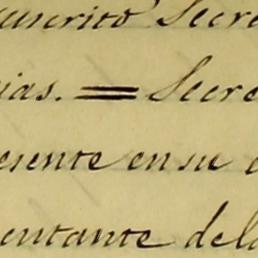 uscrito Secre
ias. = Secre
esente en su
entante dela